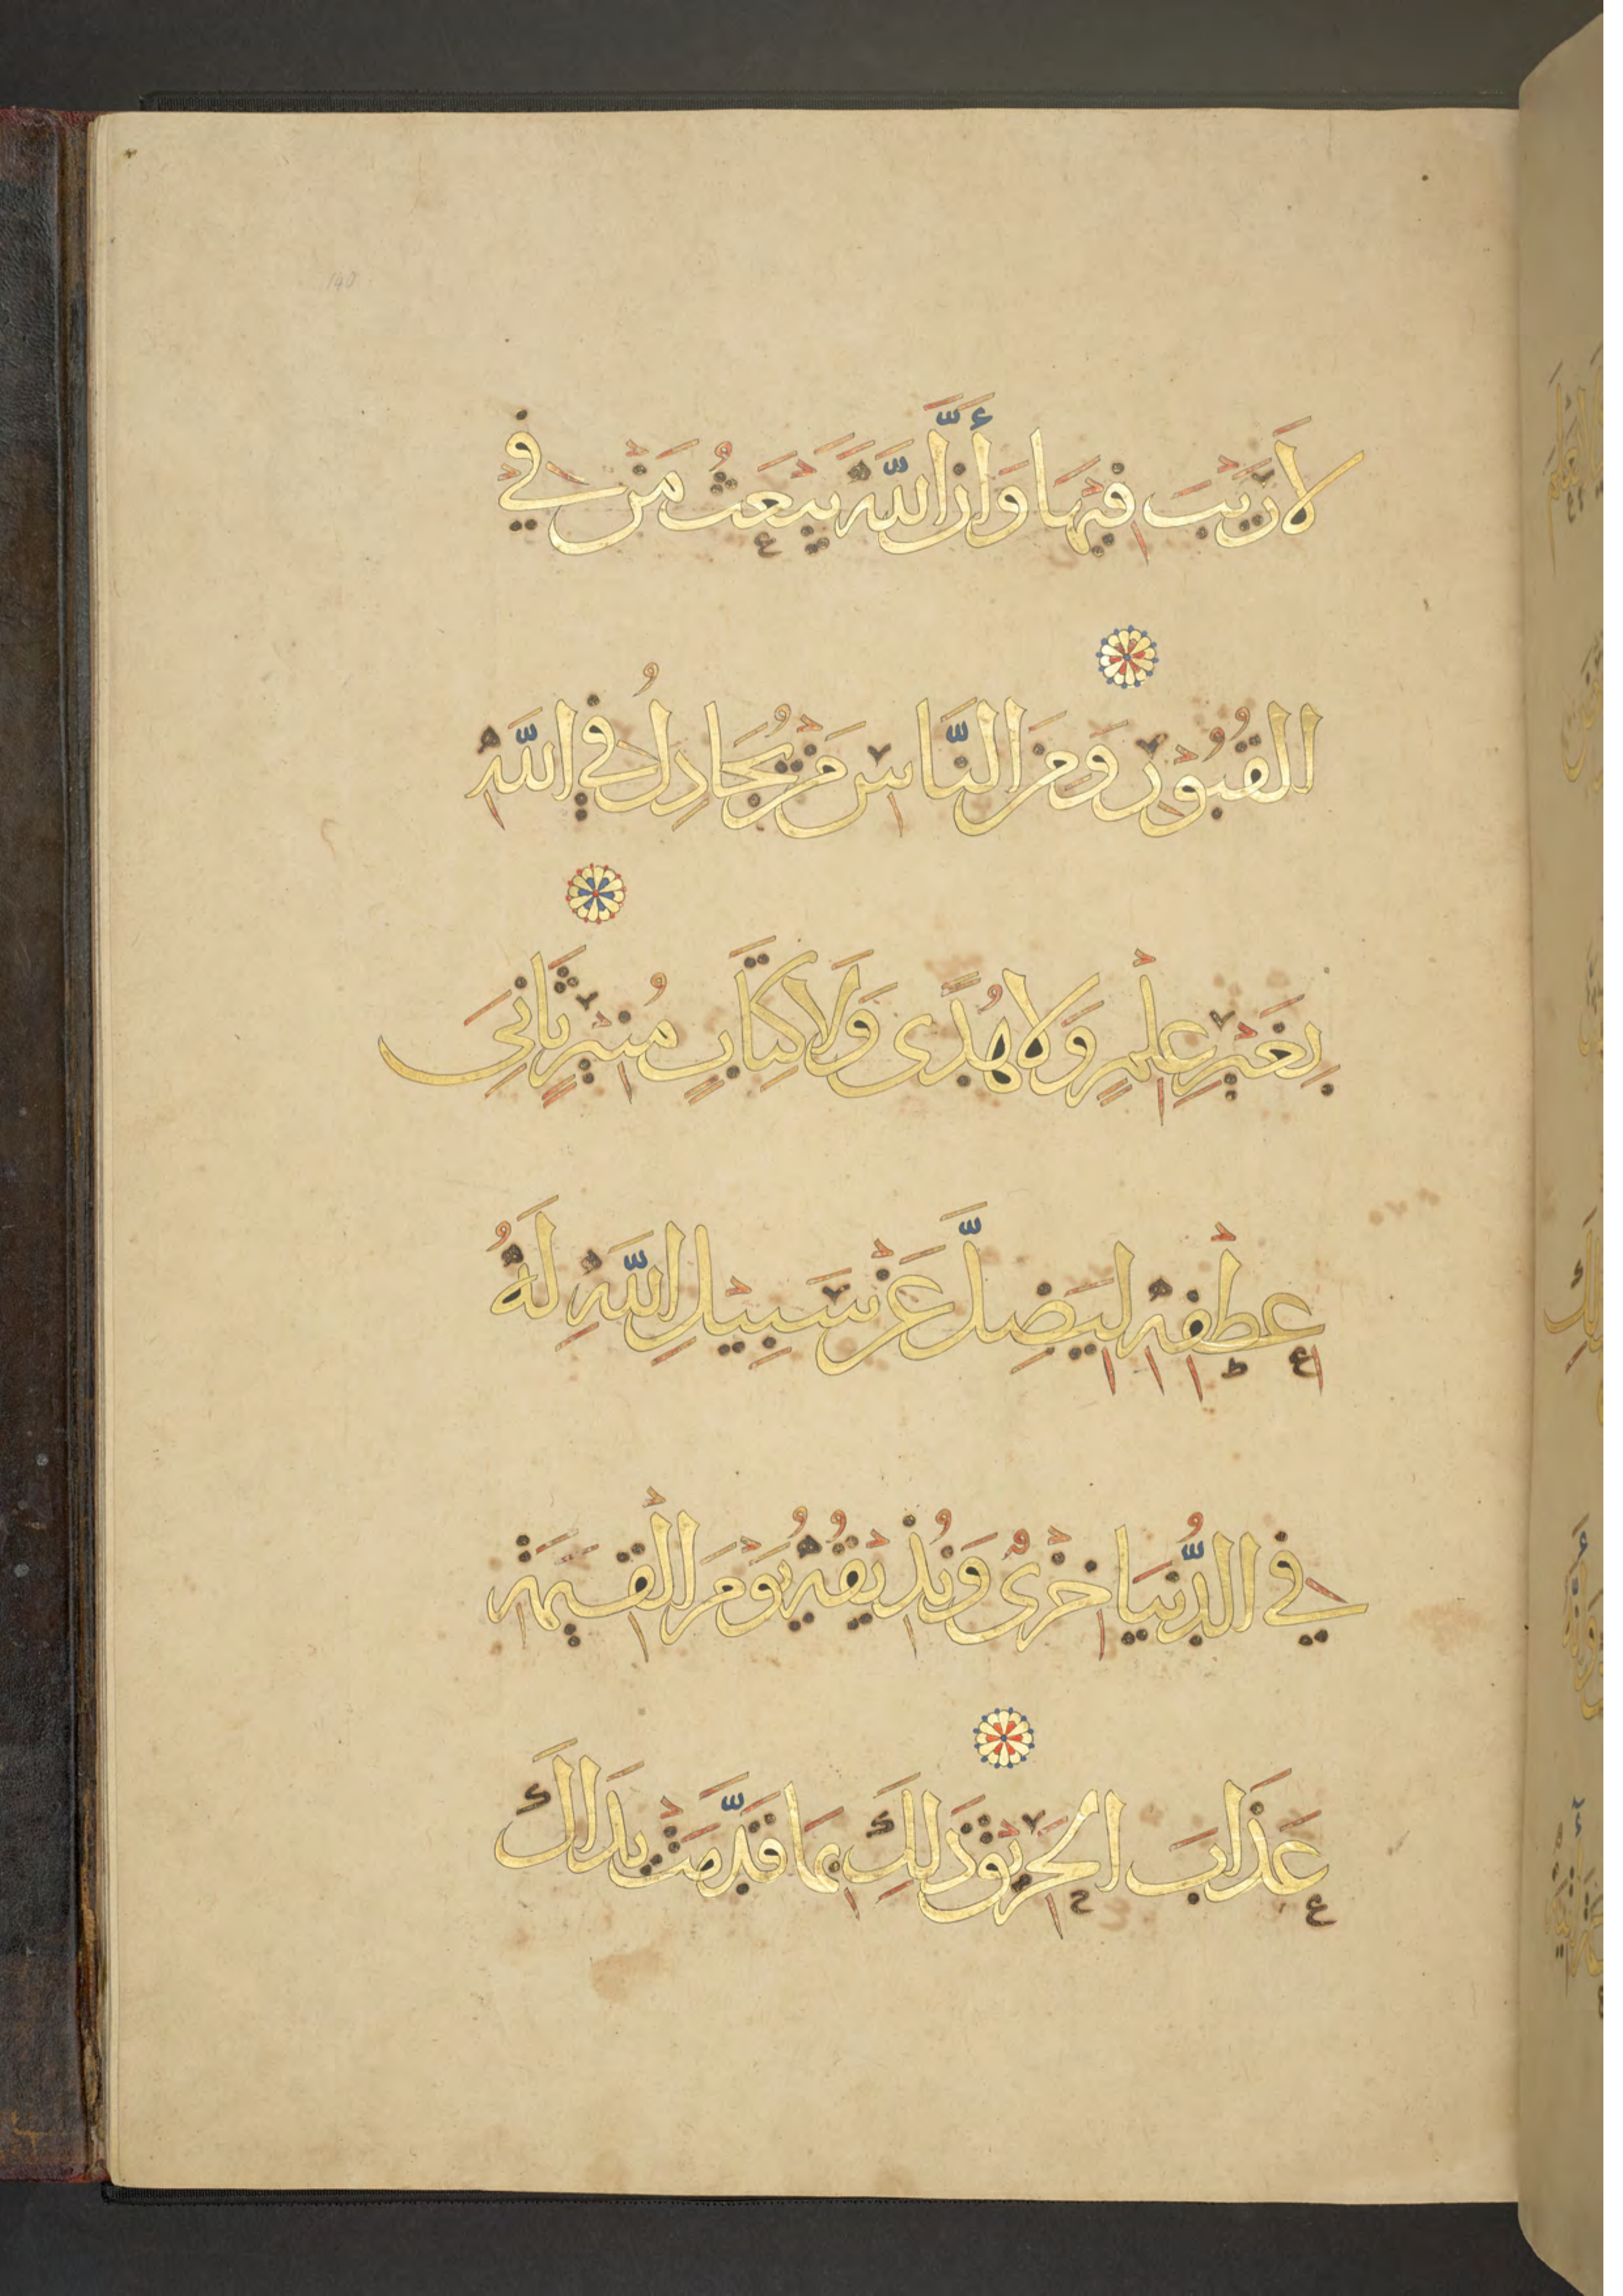 لَا رَيْبَ فِيْهَا وَأَنَّ اللَّهَ يَبْعَثُ مَنْ فِي
الْقُبُوْرِ وَمِنَ النَّاسِ مَنْ يُجَادِلُ فِي اللَّهِ
بِغَيْرِ عِلْمٍ وَلَا هُدًى وَلَا كِتَابٍ مُنِيْرٍ ثَانِيَ
عِطْفِهِ لِيَضِلَّ عَنْ سَبِيْلِ اللَّهِ لَهُ
فِي الدُّنْيَا خِزْيٌ وَنُذِيْقُهُ يَوْمَ الْقِيٰمَةِ
عَذَابَ الْحَرِيْقِ ذَلِكَ بِمَا قَدَّمَتْ يَدَاكَ